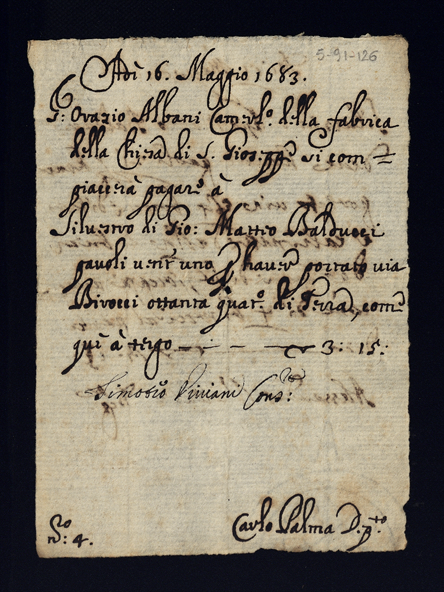 5-91-126
Adi 16. Maggio 1683.
S: Orazio Albani Camerl.º della fabrica
della Chiesa di S. Gioseppe si com=
piacerà pagare à
Silvestro di Gio: Matteo Balducci
pauoli vent'uno p hauer portato via
Birocci ottanta quatr.º di Terra, come
qui à tergo — 3: 15:
Timoteo Viviani Cons:re
Carlo Palma D.p.to
N.º: 4.